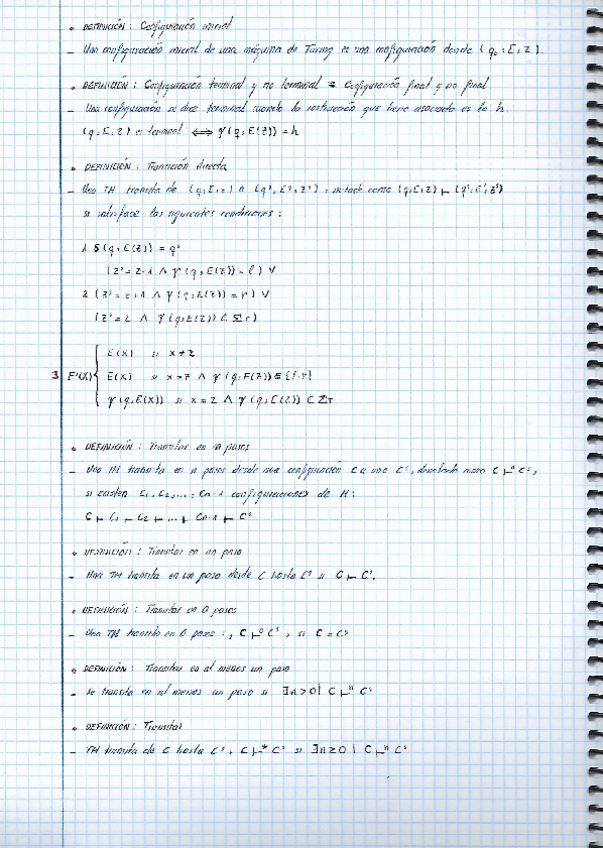 • DEFINICIÓN: Configuración inicial
– Una configuración inicial de una máquina de Turing es una configuración donde (q₀, E, z).
• DEFINICIÓN: Configuración terminal y no terminal = Configuración final y no final
– Una configuración se dice terminal cuando la instrucción que tiene asociada es la h.
(q, E, z) es terminal ⟺ γ(q, E(z)) = h
• DEFINICIÓN: Transición directa
– Una TM transita de (q, E, z) a (q', E', z'), como (q, E, z) ⊢ (q', E', z')
si satisface las siguientes condiciones:
1 δ(q, E(z)) = q'
(z' = z-1 ∧ γ(q, E(z)) = l) ∨
2 (z' = z+1 ∧ γ(q, E(z)) = r) ∨
(z' = z ∧ γ(q, E(z)) ∈ Σ)
E(x) si x ≠ z
3 E'(x) { E(x) si x = z ∧ γ(q, E(z)) ∈ {l, r}
γ(q, E(x)) si x = z ∧ γ(q, E(z)) ∈ Σ
• DEFINICIÓN: Transitar en n pasos
– Una TM transita en n pasos desde una configuración C a una C', denotado como C ⊢ⁿ C',
si existen C₁, C₂, ..., Cn-1 configuraciones de M:
C ⊢ C₁ ⊢ C₂ ⊢ ... ⊢ Cn-1 ⊢ C'
• DEFINICIÓN: Transitar en un paso
– Una TM transita en un paso desde C hasta C' si C ⊢ C'.
• DEFINICIÓN: Transitar en 0 pasos
– Una TM transita en 0 pasos, C ⊢⁰ C', si C = C'
• DEFINICIÓN: Transitar en al menos un paso
– Se transita en al menos un paso si ∃n>0 | C ⊢ⁿ C'
• DEFINICIÓN: Transitar
– TM transita de C hasta C', C ⊢* C' si ∃n≥0 | C ⊢ⁿ C'